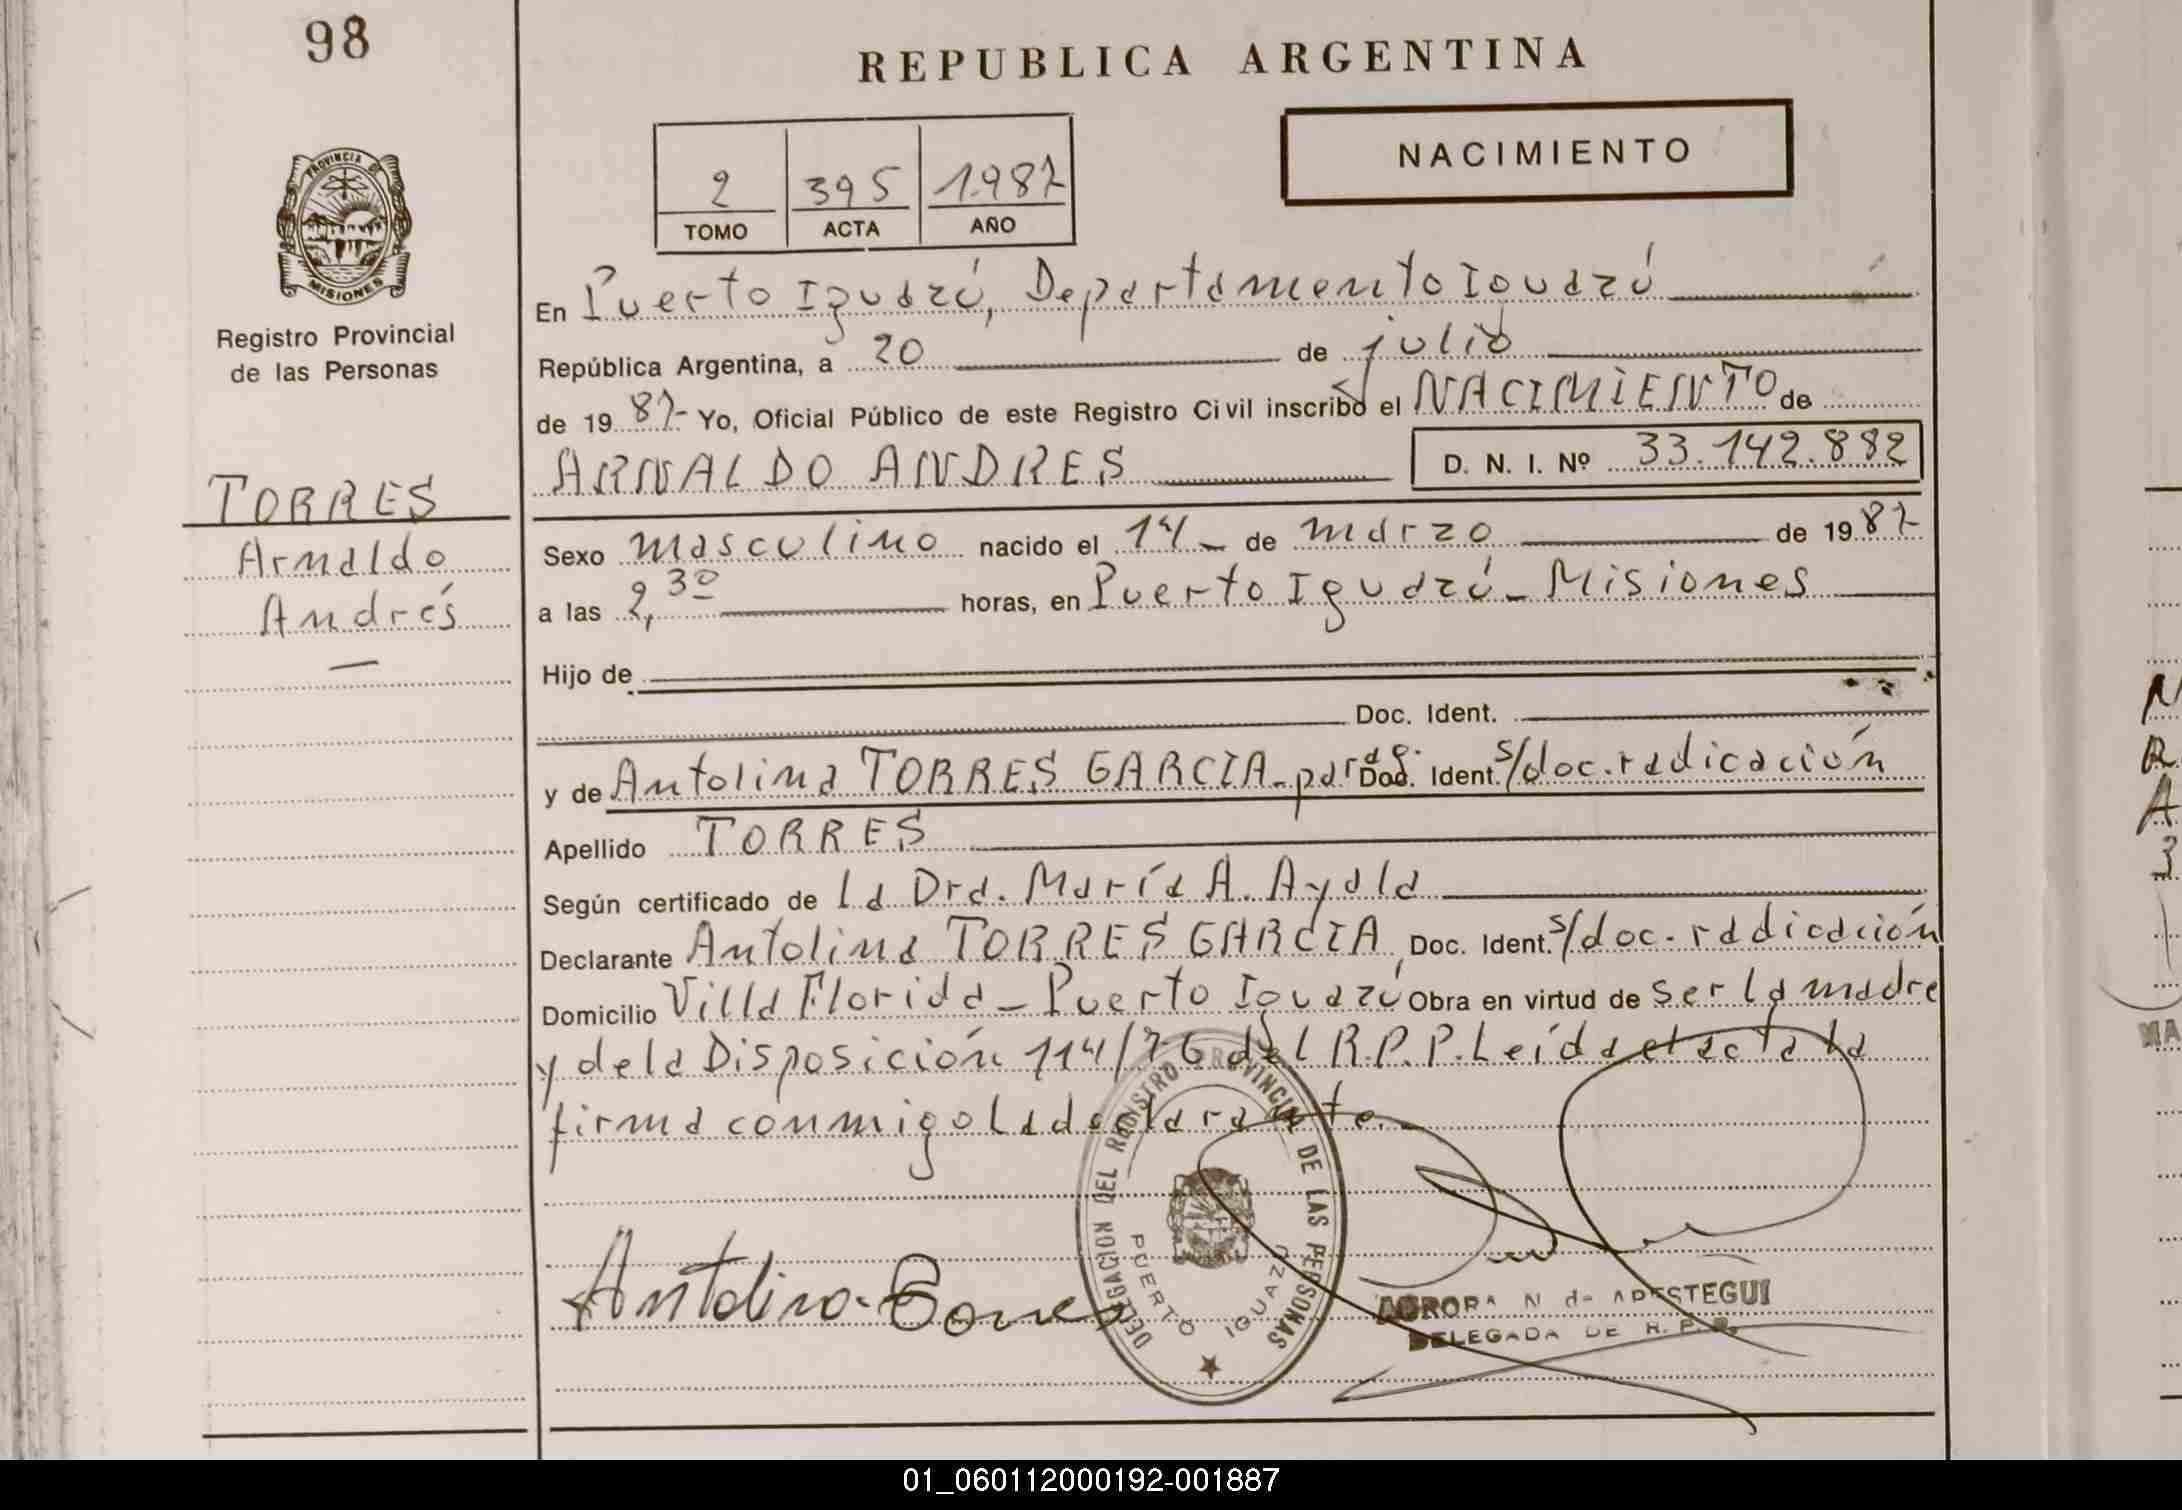 98
REPUBLICA ARGENTINA
NACIMIENTO
2 395 1987
TOMO ACTA AÑO
PROVINCIA
MISIONES
Registro Provincial
de las Personas
TORRES
Arnaldo
Andrés
En Puerto Iguazú, Departamento Iguazú
República Argentina, a 20 de julio
de 1987- Yo, Oficial Público de este Registro Civil inscribo el NACIMIENTO de
ARNALDO ANDRES D. N. I. Nº 33.142.882
Sexo masculino nacido el 14 de marzo de 1987
a las 2,30 horas, en Puerto Iguazú - Misiones
Hijo de
Doc. Ident.
y de Antolina TORRES GARCIA - parag. Doc. Ident. s/doc. radicación
Apellido TORRES
Según certificado de la Dra. María A. Ayala
Declarante Antolina TORRES GARCIA Doc. Ident. s/doc. radicación
Domicilio Villa Florida - Puerto Iguazú Obra en virtud de ser la madre
y de la Disposición 114/76 del R.P.P. Leída el acta la
firma conmigo la declarante.
DELEGACION DEL REGISTRO PROVINCIAL DE LAS PERSONAS
PUERTO IGUAZU
Antolina
DELEGADA DE R. P. P.
01_060112000192-001887